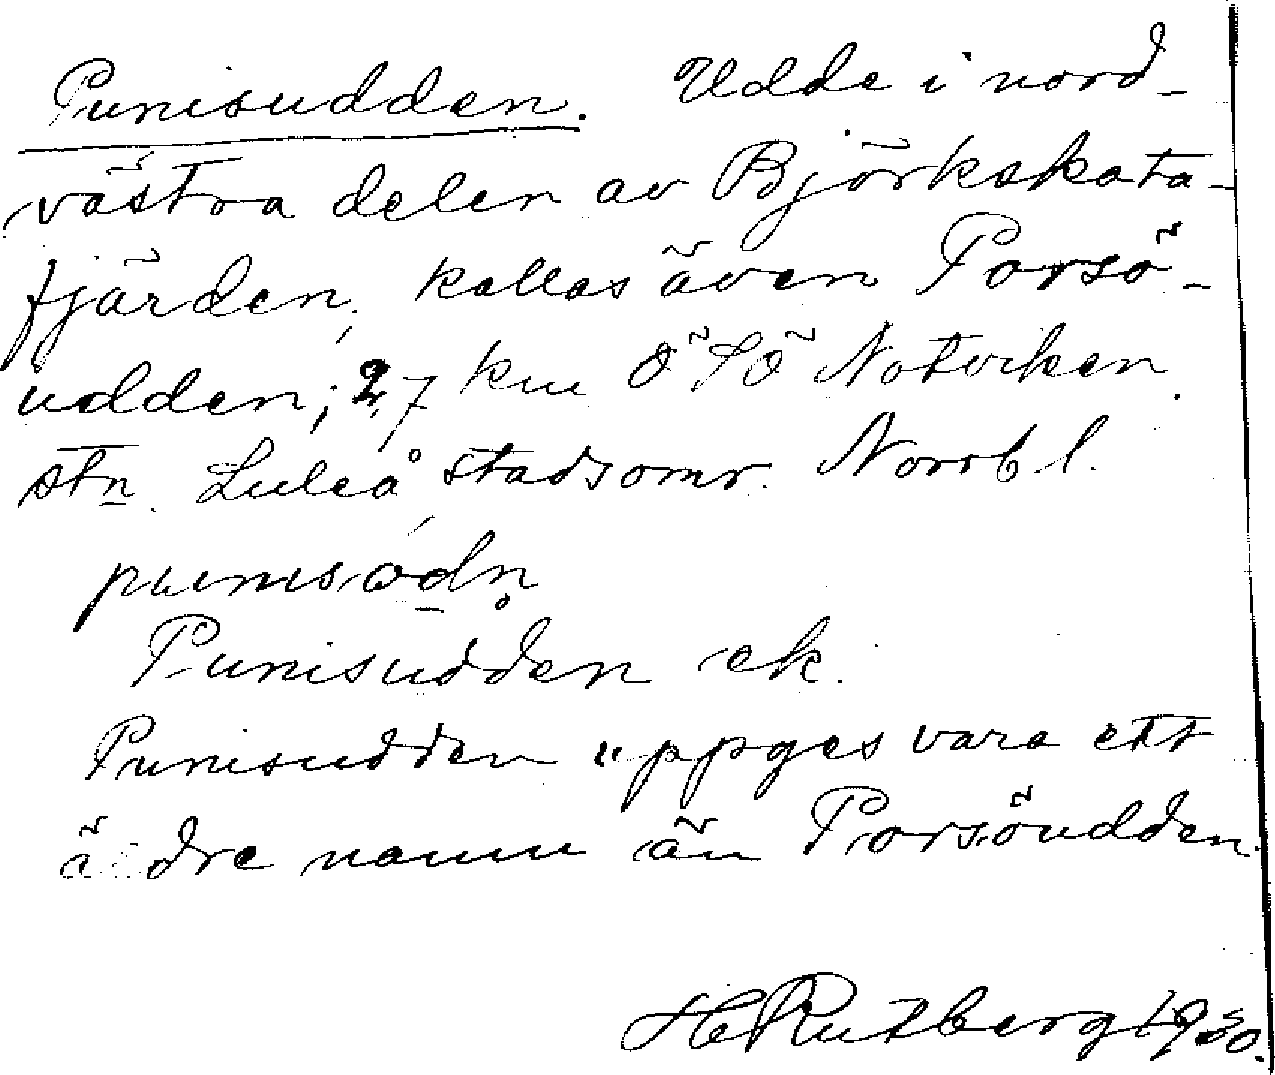 Punisudden. Udde i nord-
västra delen av Björkskata-
fjärden; kallas även Porsö-
udden; 2,7 km ö Sö Notviken
stn. Luleå stadsomr. Norrb l.
punisödn
Punisudden ek.
Punisudden uppges vara ett
äldre namn än Porsöudden.
H Rutberg 1930.